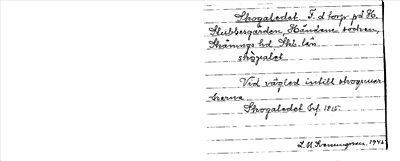 Skogaledet F. d torp på H.
Stubbegården, Händene socken,
Skånings hd, Skb. län.
skogalet
Vid vägled intill skogmar-
kerna
Skogaledet Jrf. 1815.
L.M. Svenungsson, 1945